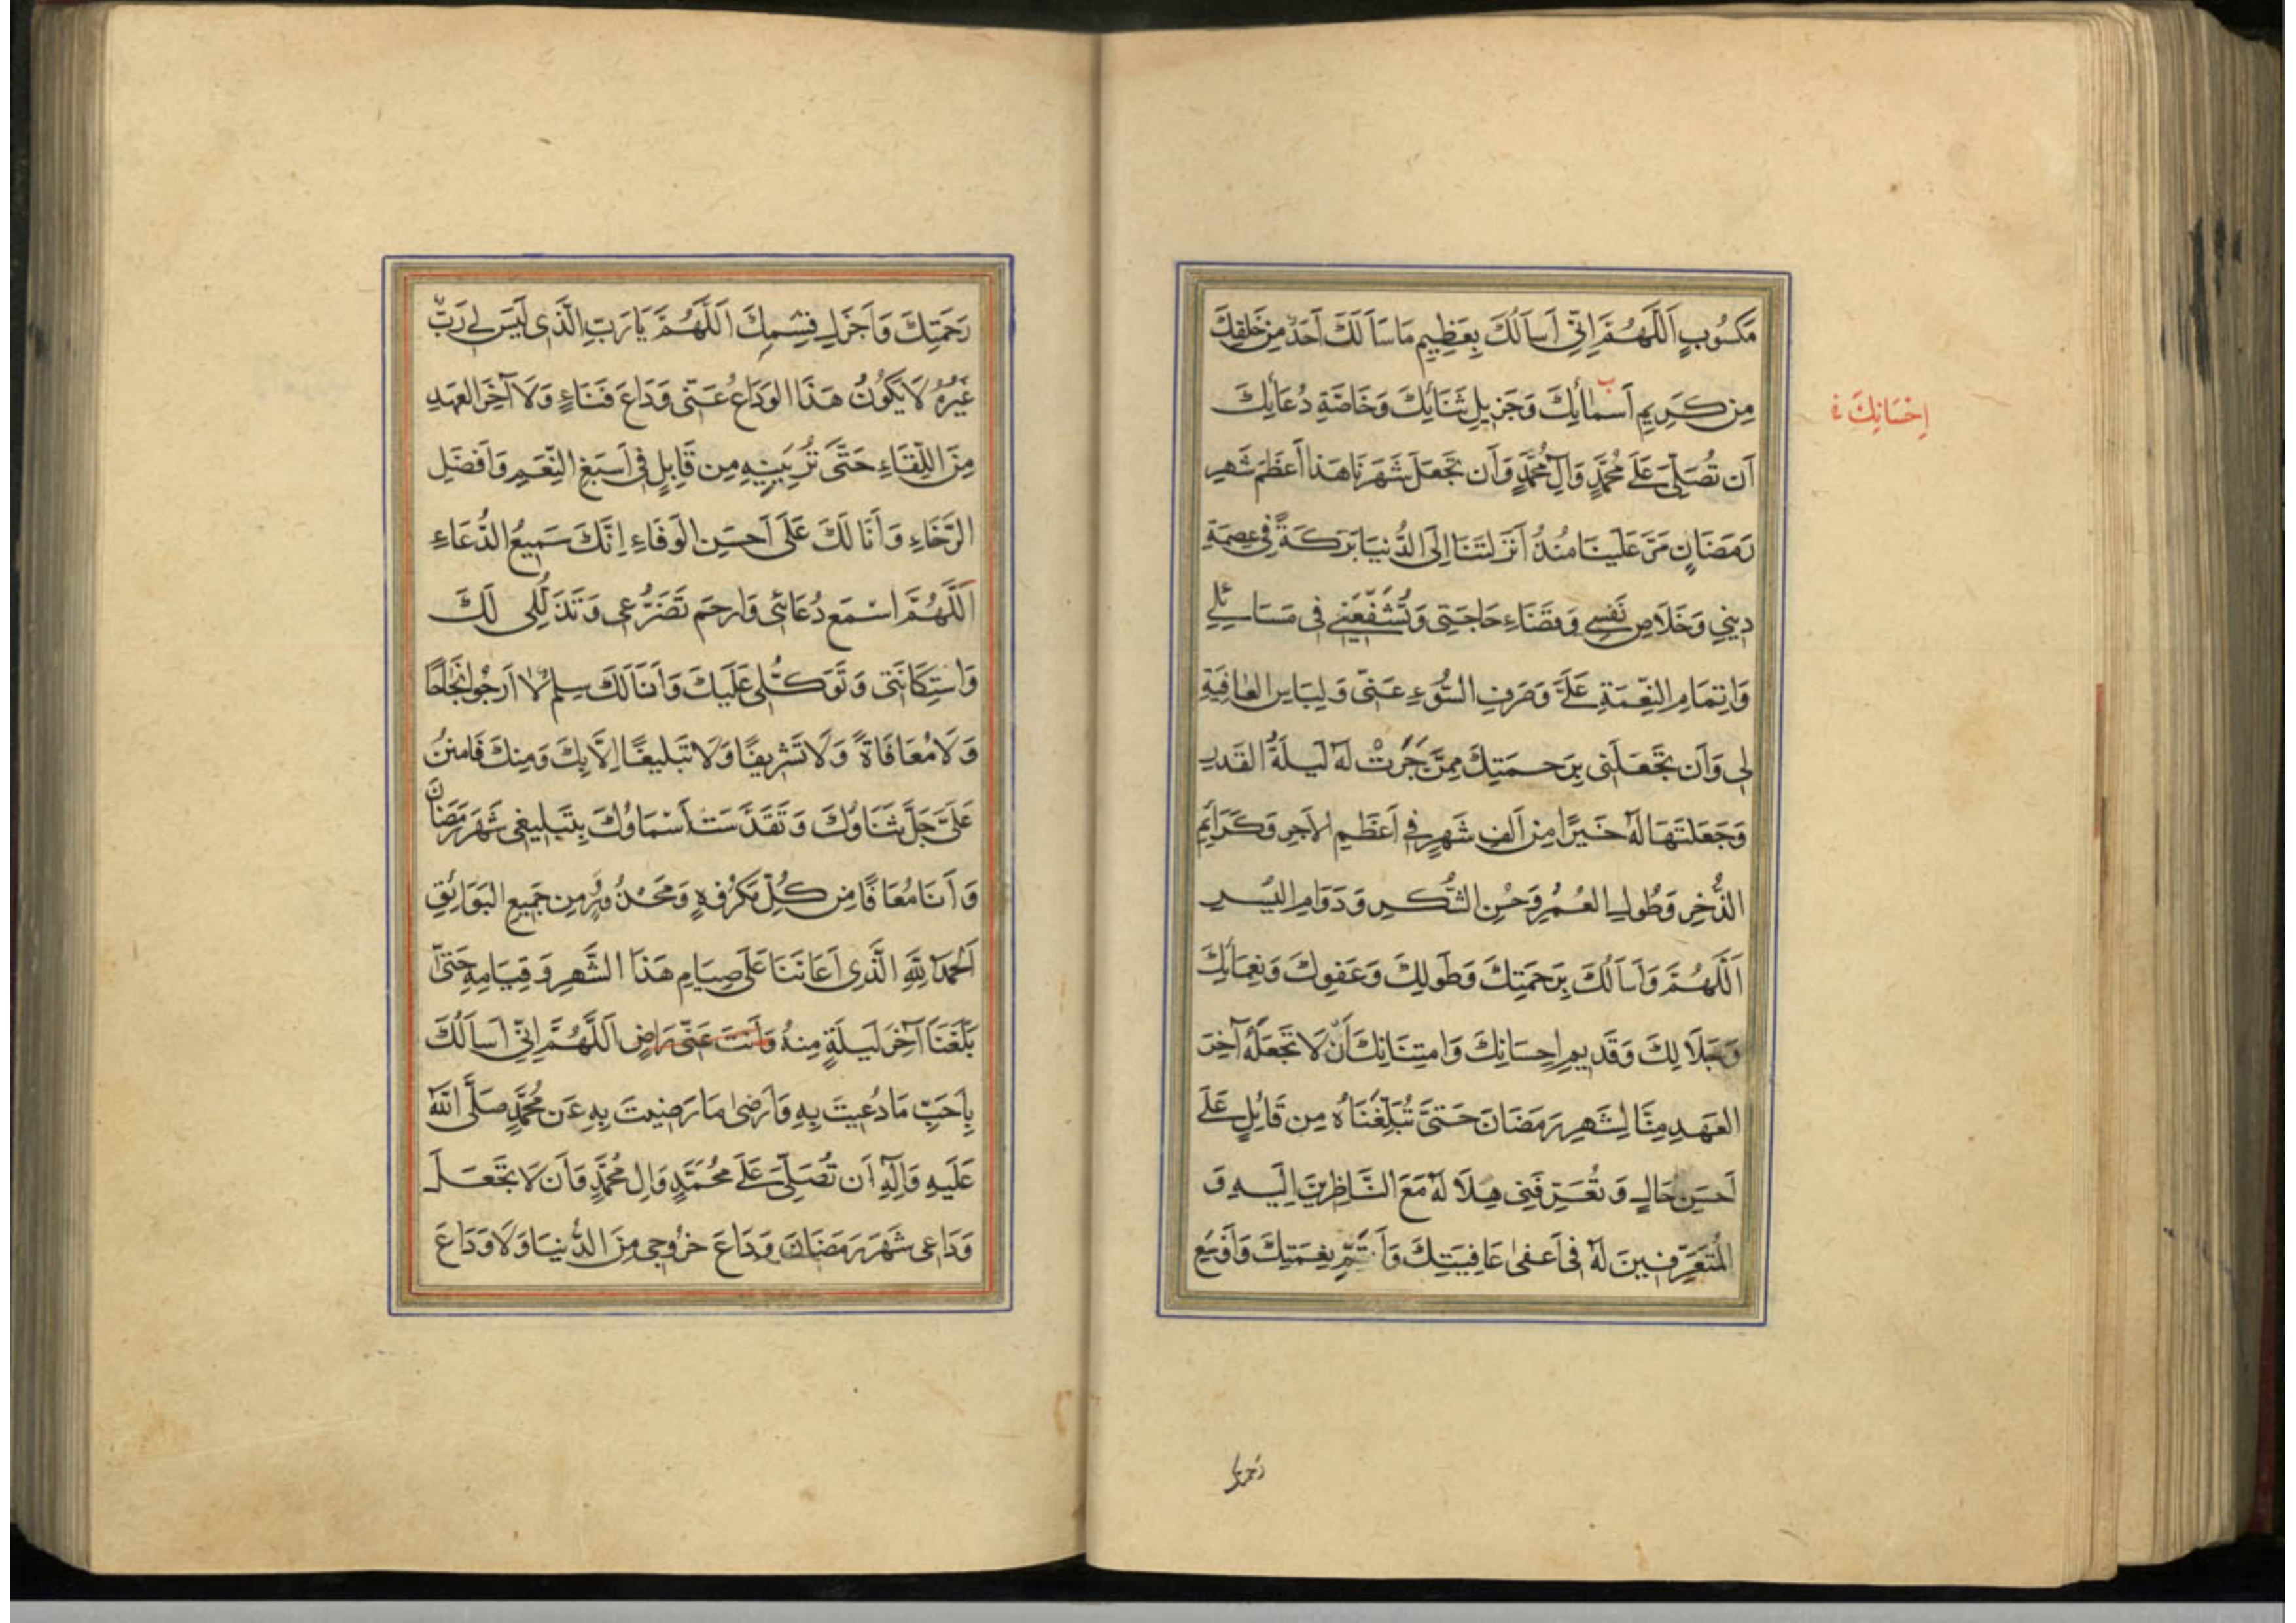 مَكسُوبٍ اَللّهُمَّ اِنّي اَساَلُكَ بِعَظِيمِ مَا سَأَلَكَ اَحَدٌ مِن خَلقِكَ
مِن كَرِيمِ اَسمائِكَ وَجَزيلِ ثَنَائِكَ وَخَاصَّةِ دُعَائِكَ
اِحْسَانِكَ
اَن تُصَلِّيَ عَلَى مُحَمَّدٍ وَآلِ مُحَمَّدٍ وَاَن تَجعَلَ شَهرَنَا هَذا اَعظَمَ شَهرِ
رَمَضَانٍ مَرَّ عَلَينَا مُنذُ اَنزَلتَنَا اِلَى الدُّنيَا بَرَكَةً فِي عِصمَةِ
دِيني وَخَلَاصِ نَفسِي وَقَضَاءِ حَاجَتِي وَتُشَفِّعَنِي فِي مَسَائِلِي
وَاِتمَامِ النِّعمَةِ عَلَيَّ وَصَرفِ السُّوءِ عَنّي وَلِبَاسِ العَافِيَةِ
لِي وَاَن تَجعَلَنِي بِرَحمَتِكَ مِمَّن جَرَتْ لَهُ لَيلَةُ القَدرِ
وَجَعَلتَهَا لَهُ خَيرًا مِن اَلفِ شَهرٍ فِي اَعظَمِ الاَجرِ وَكَرَائِمِ
الذُّخرِ وَطُولِ العُمُرِ وَحُسنِ الشُّكرِ وَدَوَامِ اليُسرِ
اَللّهُمَّ وَاَساَلُكَ بِرَحمَتِكَ وَطَولِكَ وَعَفوِكَ وَنَعمَائِكَ
وَجَلَالِكَ وَقَدِيمِ اِحسَانِكَ وَامتِنَانِكَ اَن لَا تَجعَلَهُ آخِرَ
العَهدِ مِنَّا لِشَهرِ رَمَضَانَ حَتّى تُبَلِّغَنَاهُ مِن قَابِلٍ عَلَى
اَحسَنِ حَالٍ وَتُعَرِّفَنِي هِلَالَهُ مَعَ النَّاظِرِينَ اِلَيهِ وَ
المُتَعَرِّفِينَ لَهُ فِي اَعفَى عَافِيَتِكَ وَاَتَمِّ نِعمَتِكَ وَاَوسَعِ
رَحمتك
رَحمَتِكَ وَاَجزَلِ قِسَمِكَ اَللّهُمَّ يَا رَبِّ الَّذِي لَيسَ لِي رَبٌّ
غَيرُهُ لَا يَكُونُ هَذَا الوَدَاعُ عَنّي وَدَاعَ فَنَاءٍ وَلَا آخِرَ العَهدِ
مِنَ اللِّقَاءِ حَتَّى تُرِيَنِيهِ مِن قَابِلٍ فِي اَسبَغِ النِّعَمِ وَاَفضَلِ
الرَّخَاءِ وَاَنَا لَكَ عَلَى اَحسَنِ الوَفَاءِ اِنَّكَ سَمِيعُ الدُّعَاءِ
اَللّهُمَّ اسْمَع دُعَائِي وَارحَم تَضَرُّعِي وَتَذَلُّلِي لَكَ
وَاستِكَانَتِي وَتَوَكُّلِي عَلَيكَ وَاَنَا لَكَ سِلمٌ لَا اَرجُو نَجَاحًا
وَلَا مُعَافَاةً وَلَا تَشرِيفًا وَلَا تَبلِيغًا اِلَّا بِكَ وَمِنكَ فَامنُن
عَلَيَّ جَلَّ ثَنَاؤُكَ وَتَقَدَّسَت اَسْمَاؤُكَ بِتَبلِيغِي شَهرَ رَمَضَانَ
وَاَنَا مُعَافًا مِن كُلِّ مَكرُوهٍ وَمَحْذُورٍ مِن جَمِيعِ البَوَائِقِ
اَلحَمدُ لِلّهِ الَّذِي اَعَانَنَا عَلَى صِيَامِ هَذَا الشَّهرِ وَقِيَامِهِ حَتَّى
بَلَّغَنَا آخِرَ لَيلَةٍ مِنهُ وَاَنتَ عَنّي رَاضٍ اَللّهُمَّ اِنّي اَساَلُكَ
بِاَحَبِّ مَا دُعِيتَ بِهِ وَاَرضَى مَا رَضِيتَ بِهِ عَن مُحَمَّدٍ صَلَّى اللهُ
عَلَيهِ وَآلِهِ اَن تُصَلِّيَ عَلَى مُحَمَّدٍ وَآلِ مُحَمَّدٍ وَاَن لَا تَجعَلَ
وَدَاعِي شَهرَ رَمَضَانَ وَدَاعَ خُرُوجِي مِنَ الدُّنيَا وَلَا وَدَاعَ